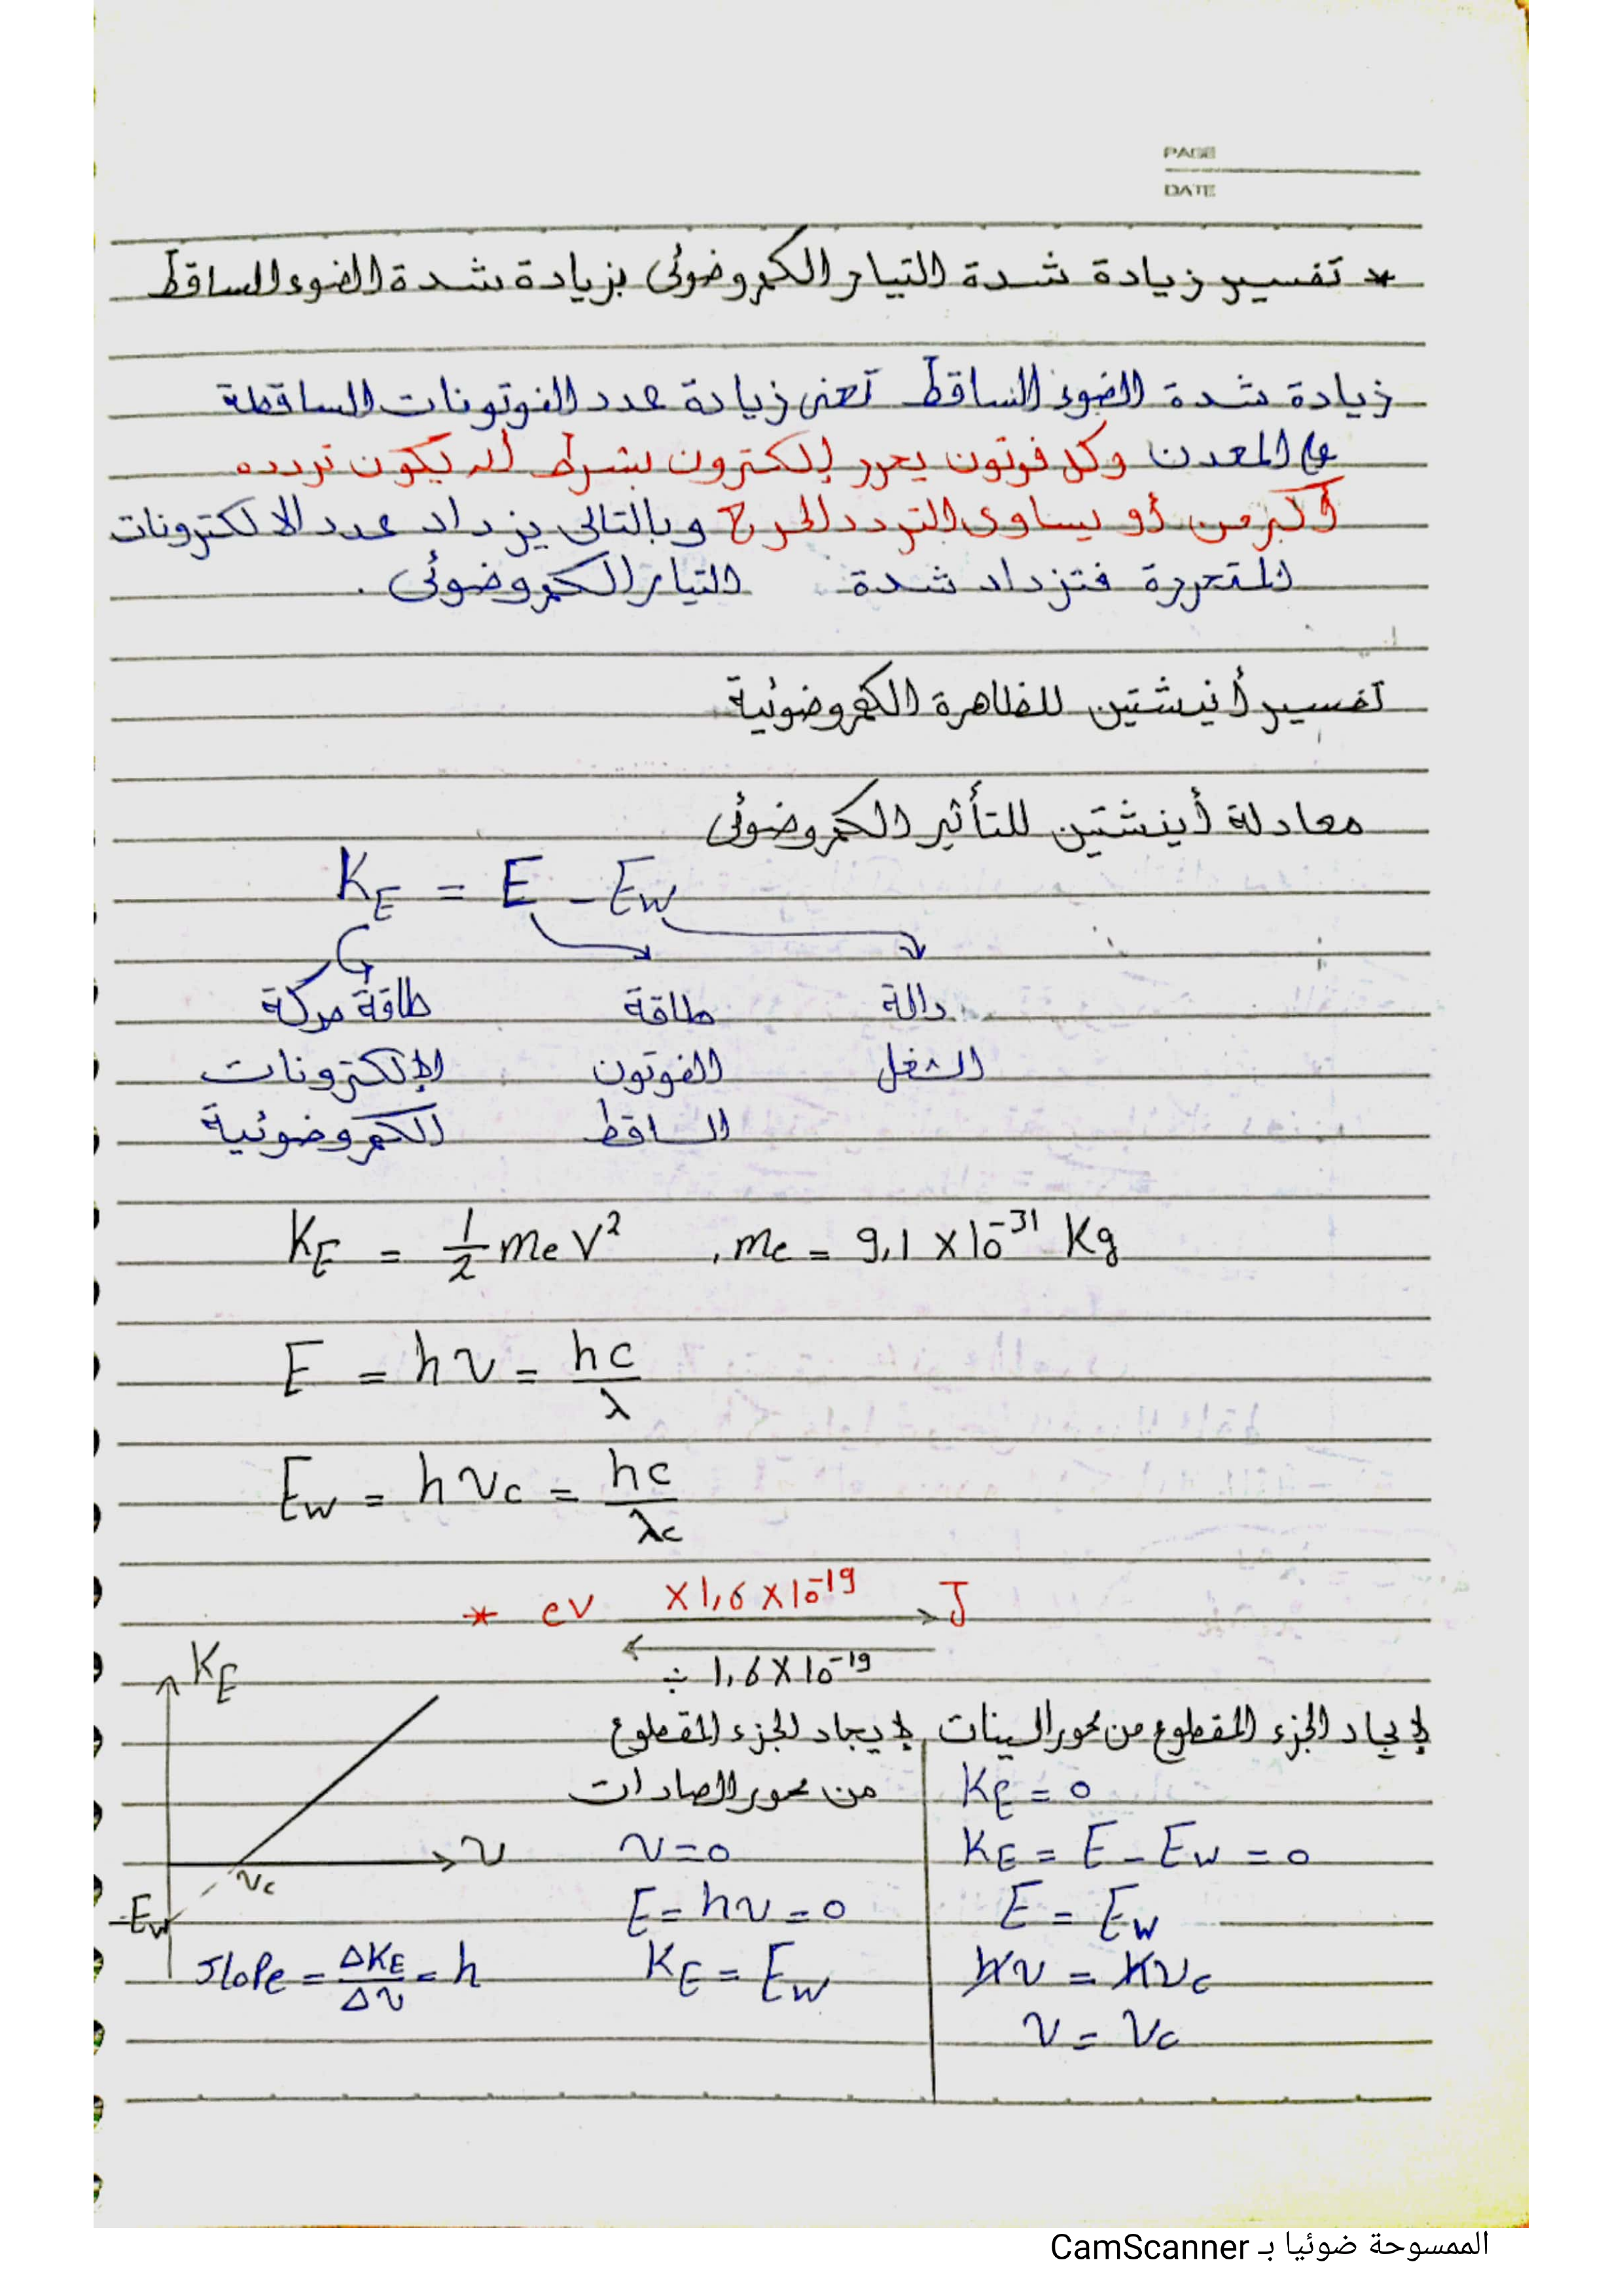 PAGE
DATE
* تفسير زيادة شدة التيار الكهروضوئى بزيادة شدة الضوء الساقط
زيادة شدة الضوء الساقط تعنى زيادة عدد الفوتونات الساقطة
على المعدن وكل فوتون يحرر إلكترون بشرط أن يكون تردده
أكبر من أو يساوى التردد الحرج وبالتالى يزداد عدد الالكترونات
المتحررة فتزداد شدة التيار الكهروضوئى .
تفسير أنيشتين للظاهرة الكهروضوئية
معادلة أينشتين للتأثير الكهروضوئى
KE = E - Ew
طاقة حركة طاقة دالة
الإلكترونات الفوتون الشغل
الكهروضوئية الساقط
KE = 1/2 me V² , me = 9,1 × 10⁻³¹ Kg
E = hν = hc/λ
Ew = hνc = hc/λc
* eV ×1,6×10⁻¹⁹ J
÷ 1,6×10⁻¹⁹
KE
ν
νc
-Ew
slope = ΔKE/Δν = h
لإيجاد الجزء المقطوع من محور السينات
KE = 0
KE = E - Ew = 0
E = Ew
hν = hνc
ν = νc
لإيجاد الجزء المقطوع
من محور الصادات
ν = 0
E = hν = 0
KE = Ew
الممسوحة ضوئيا بـ CamScanner